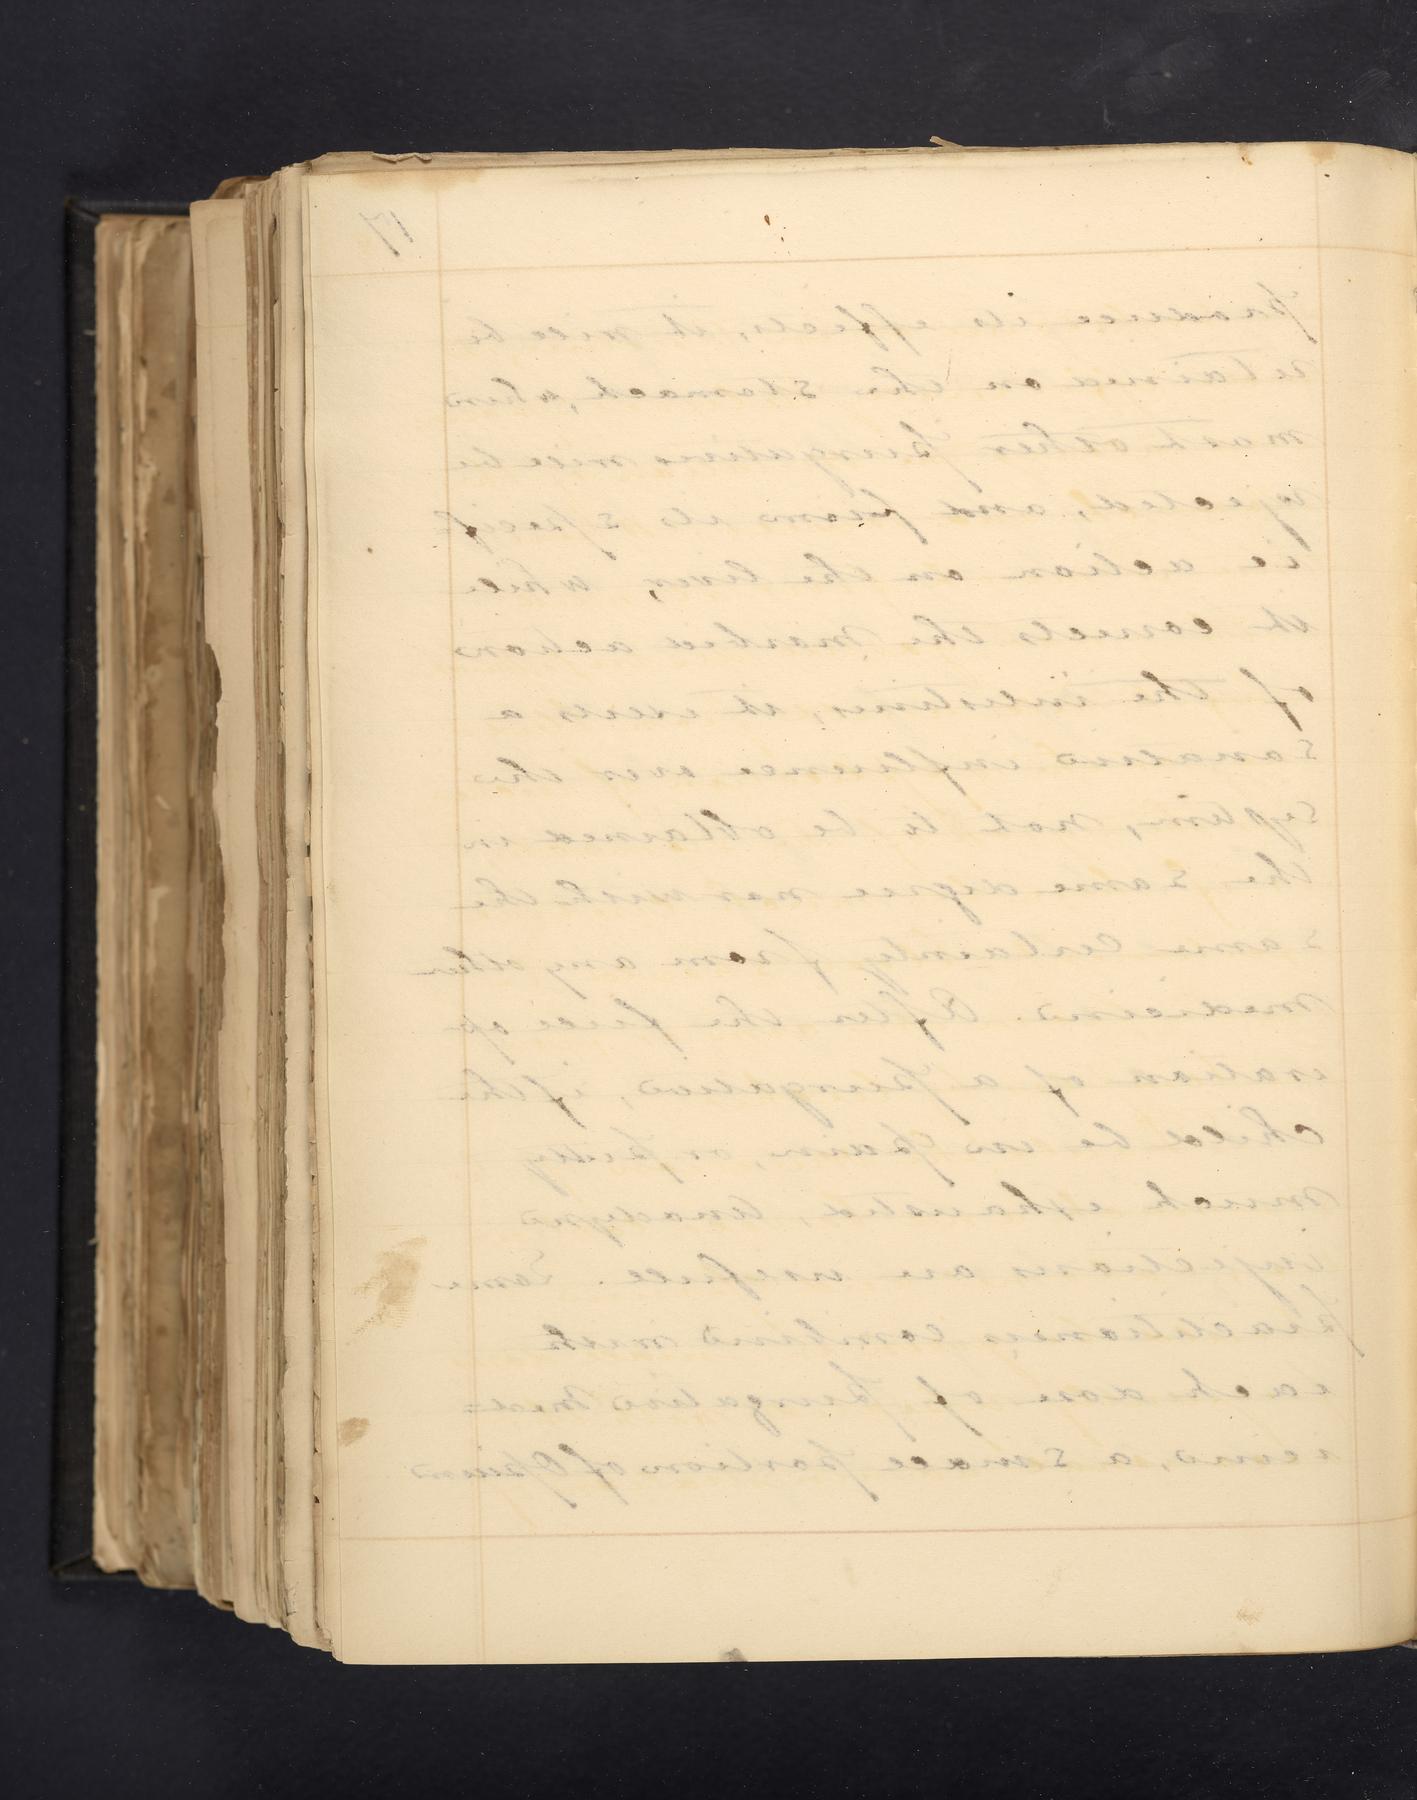 17
produce its effects, it will be
retained on the stomach, when
most other purgatives will be
rejected, and from its specif
ic action on the liver, while
it corrects the morbid action
of the intestines, it exerts a
sanative influence over the
system, not to be obtained in
the same degree nor with the
same certainty from any other
medicine. After the full op
eration of a purgative, if the
child be in pain, or
much exhausted, anodyne
injections are usefull. Some
practitioners combine with
each dose of purgative med=
icine, a small portion of Opium